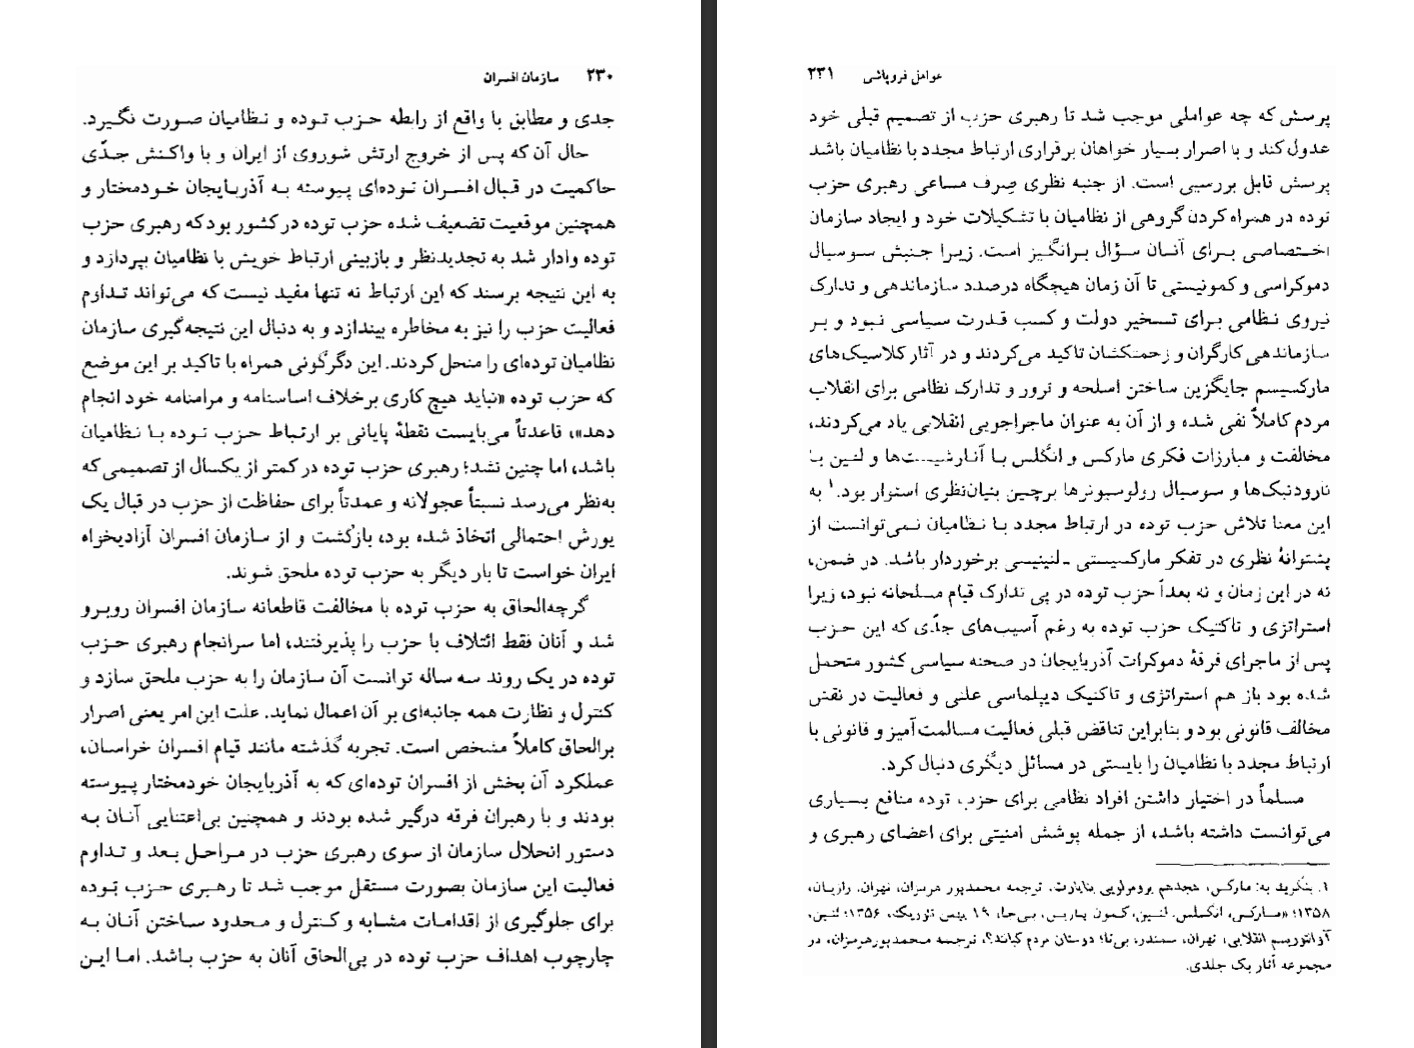 ۲۳۰ سازمان افسران
جدی و مطابق با واقع از رابطه حزب توده و نظامیان صورت نگیرد.
حال آن که پس از خروج ارتش شوروی از ایران و با واکنش جدّی
حاکمیت در قبال افسران توده‌ای پیوسته به آذربایجان خودمختار و
همچنین موقعیت تضعیف شده حزب توده در کشور بود که رهبری حزب
توده وادار شد به تجدیدنظر و بازبینی ارتباط خویش با نظامیان بپردازد و
به این نتیجه برسند که این ارتباط نه تنها مفید نیست که می‌تواند تداوم
فعالیت حزب را نیز به مخاطره بیندازد و به دنبال این نتیجه‌گیری سازمان
نظامیان توده‌ای را منحل کردند. این دگرگونی همراه با تاکید بر این موضع
که حزب توده «نباید هیچ کاری برخلاف اساسنامه و مرامنامه خود انجام
دهد»، قاعدتاً می‌بایست نقطهٔ پایانی بر ارتباط حزب توده با نظامیان
باشد، اما چنین نشد؛ رهبری حزب توده در کمتر از یکسال از تصمیمی که
به‌نظر می‌رسد نسبتاً عجولانه و عمدتاً برای حفاظت از حزب در قبال یک
یورش احتمالی اتخاذ شده بود، بازگشت و از سازمان افسران آزادیخواه
ایران خواست تا بار دیگر به حزب توده ملحق شوند.
گرچه‌الحاق به حزب توده با مخالفت قاطعانه سازمان افسران روبرو
شد و آنان فقط ائتلاف با حزب را پذیرفتند، اما سرانجام رهبری حزب
توده در یک روند سه ساله توانست آن سازمان را به حزب ملحق سازد و
کنترل و نظارت همه جانبه‌ای بر آن اعمال نماید. علت این امر یعنی اصرار
برالحاق کاملاً مشخص است. تجربه گذشته مانند قیام افسران خراسان،
عملکرد آن بخش از افسران توده‌ای که به آذربایجان خودمختار پیوسته
بودند و با رهبران فرقه درگیر شده بودند و همچنین بی‌اعتنایی آنان به
دستور انحلال سازمان از سوی رهبری حزب در مراحل بعد و تداوم
فعالیت این سازمان بصورت مستقل موجب شد تا رهبری حزب توده
برای جلوگیری از اقدامات مشابه و کنترل و محدود ساختن آنان به
چارچوب اهداف حزب توده در پی‌الحاق آنان به حزب باشد. اما این
عوامل فروپاشی ۲۳۱
پرسش که چه عواملی موجب شد تا رهبری حزب از تصمیم قبلی خود
عدول کند و با اصرار بسیار خواهان برقراری ارتباط مجدد با نظامیان باشد
پرسش قابل بررسی است. از جنبه نظری صِرف مساعی رهبری حزب
توده در همراه کردن گروهی از نظامیان با تشکیلات خود و ایجاد سازمان
اختصاصی برای آنان سؤال برانگیز است. زیرا جنبش سوسیال
دموکراسی و کمونیستی تا آن زمان هیچگاه درصدد سازماندهی و تدارک
نیروی نظامی برای تسخیر دولت و کسب قدرت سیاسی نبود و بر
سازماندهی کارگران و زحمتکشان تاکید می‌کردند و در آثار کلاسیک‌های
مارکسیسم جایگزین ساختن اسلحه و ترور و تدارک نظامی برای انقلاب
مردم کاملاً نفی شده و از آن به عنوان ماجراجویی انقلابی یاد می‌کردند،
مخالفت و مبارزات فکری مارکس و انگلس با آنارشیست‌ها و لنین با
نارودنیک‌ها و سوسیال رولوسیونرها برچنین بنیان‌نظری استوار بود.۱ به
این معنا تلاش حزب توده در ارتباط مجدد با نظامیان نمی‌توانست از
پشتوانهٔ نظری در تفکر مارکسیستی ـ لنینیسی برخوردار باشد. در ضمن،
نه در این زمان و نه بعداً حزب توده در پی تدارک قیام مسلحانه نبود، زیرا
استراتژی و تاکتیک حزب توده به رغم آسیب‌های جدّی که این حزب
پس از ماجرای فرقهٔ دموکرات آذربایجان در صحنه سیاسی کشور متحمل
شده بود باز هم استراتژی و تاکتیک دیپلماسی علنی و فعالیت در نقش
مخالف قانونی بود و بنابراین تناقض قبلی فعالیت مسالمت‌آمیز و قانونی با
ارتباط مجدد با نظامیان را بایستی در مسائل دیگری دنبال کرد.
مسلماً در اختیار داشتن افراد نظامی برای حزب توده منافع بسیاری
می‌توانست داشته باشد، از جمله پوشش امنیتی برای اعضای رهبری و
۱. بنگرید به: مارکس، هجدهم برومرلویی بناپارت، ترجمه محمدپور هرمزان، تهران،
۱۳۵۸؛ «مارکس، انگلس، لنین، کمون پاریس، بی‌جا، ۱۹ بهمن تئوریک، ۱۳۵۶؛ لنین،
آوانتوریسم انقلابی، تهران، سمندر، بی‌تا؛ دوستان مردم کیانند؟، ترجمه محمدپورهرمزان، در
مجموعه آثار یک جلدی.